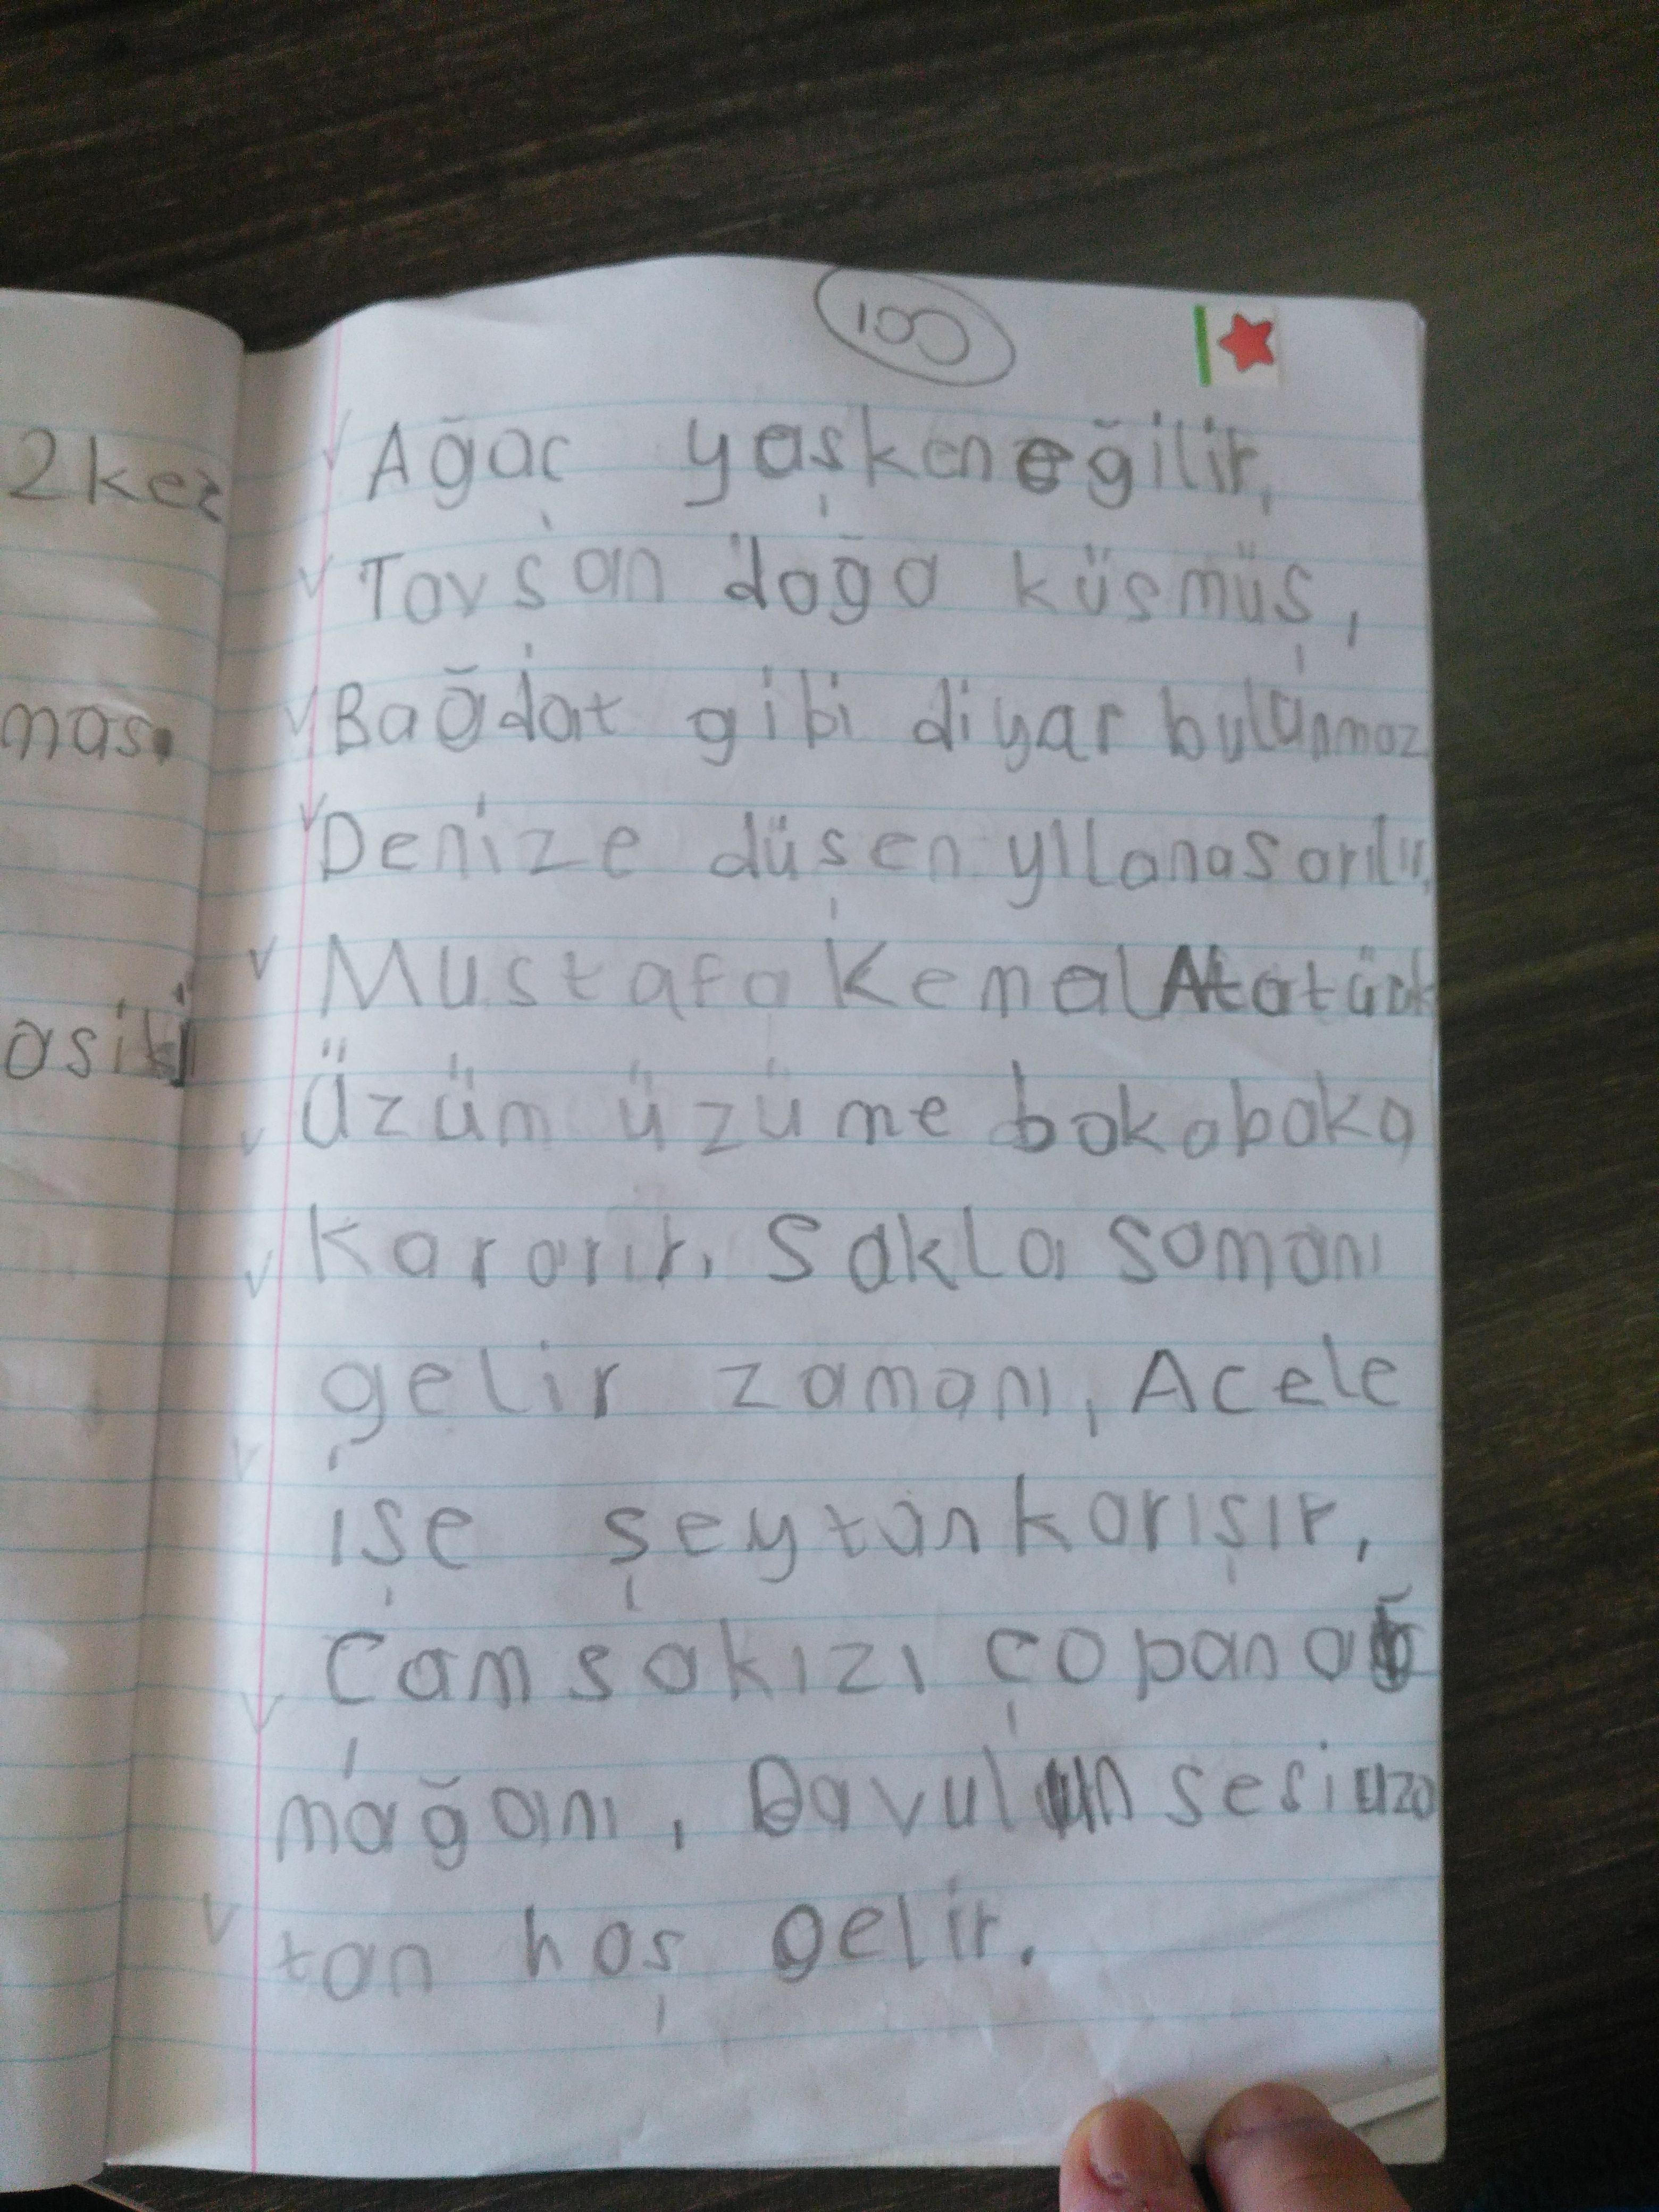 100
2 kez
Ağaç yaşken eğilir,
Tavşan dağa küsmüş,
Bağdat gibi diyar bulunmaz
mas.
Denize düşen yılana sarılır,
Mustafa Kemal Atatürk
Üzüm üzüme baka baka
Kararır. Sakla samanı
gelir zamanı, Acele
işe şeytan karışır,
Çam sakızı çoban a
mağanı, Davulun sesi uza
tan hoş gelir.